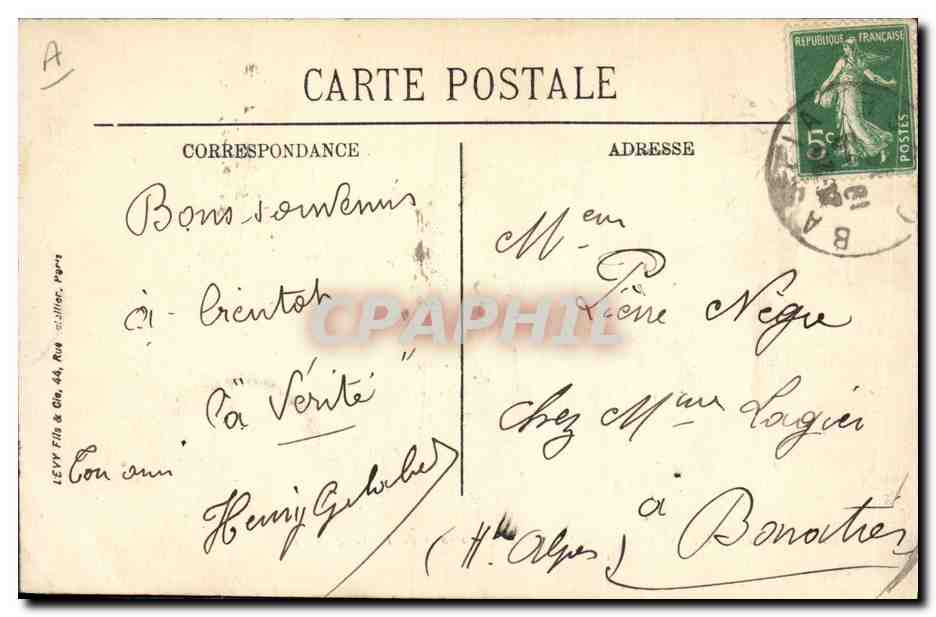 A
CARTE POSTALE
REPUBLIQUE FRANÇAISE
5c
POSTES
BASTIA
CORRESPONDANCE
ADRESSE
Bons souvenirs
à bientot
"la Vérité"
Ton ami
Henry
Meur
Pierre Nègre
chez Mme Lagier
à
(Htes Alpes)
LEVY Fils & Cie, 44, Rue Letellier, Paris
CPAPHIL